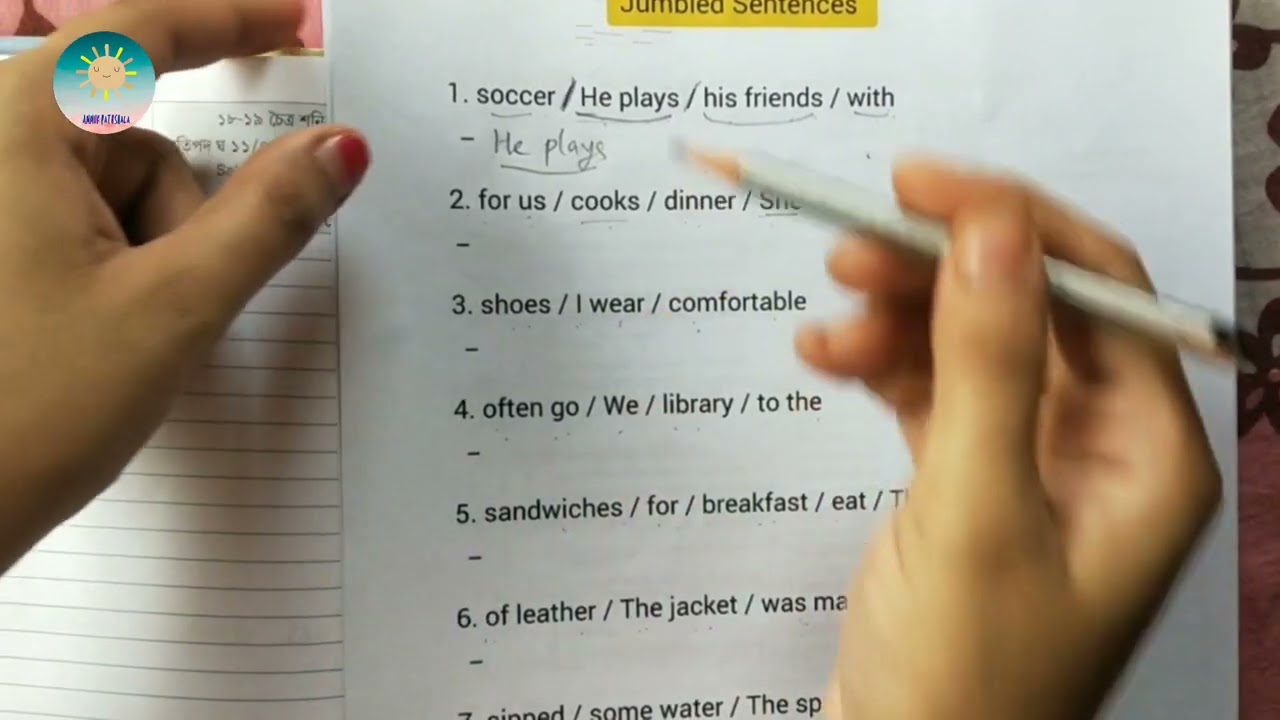 Jumbled Sentences
ANNUR PATHSHALA
১৮-১৯ চৈত্র শনি
1. soccer / He plays / his friends / with
- He plays
2. for us / cooks / dinner / She
-
3. shoes / I wear / comfortable
-
4. often go / We / library / to the
-
5. sandwiches / for / breakfast / eat /
-
6. of leather / The jacket / was
-
7. sipped / some water / The